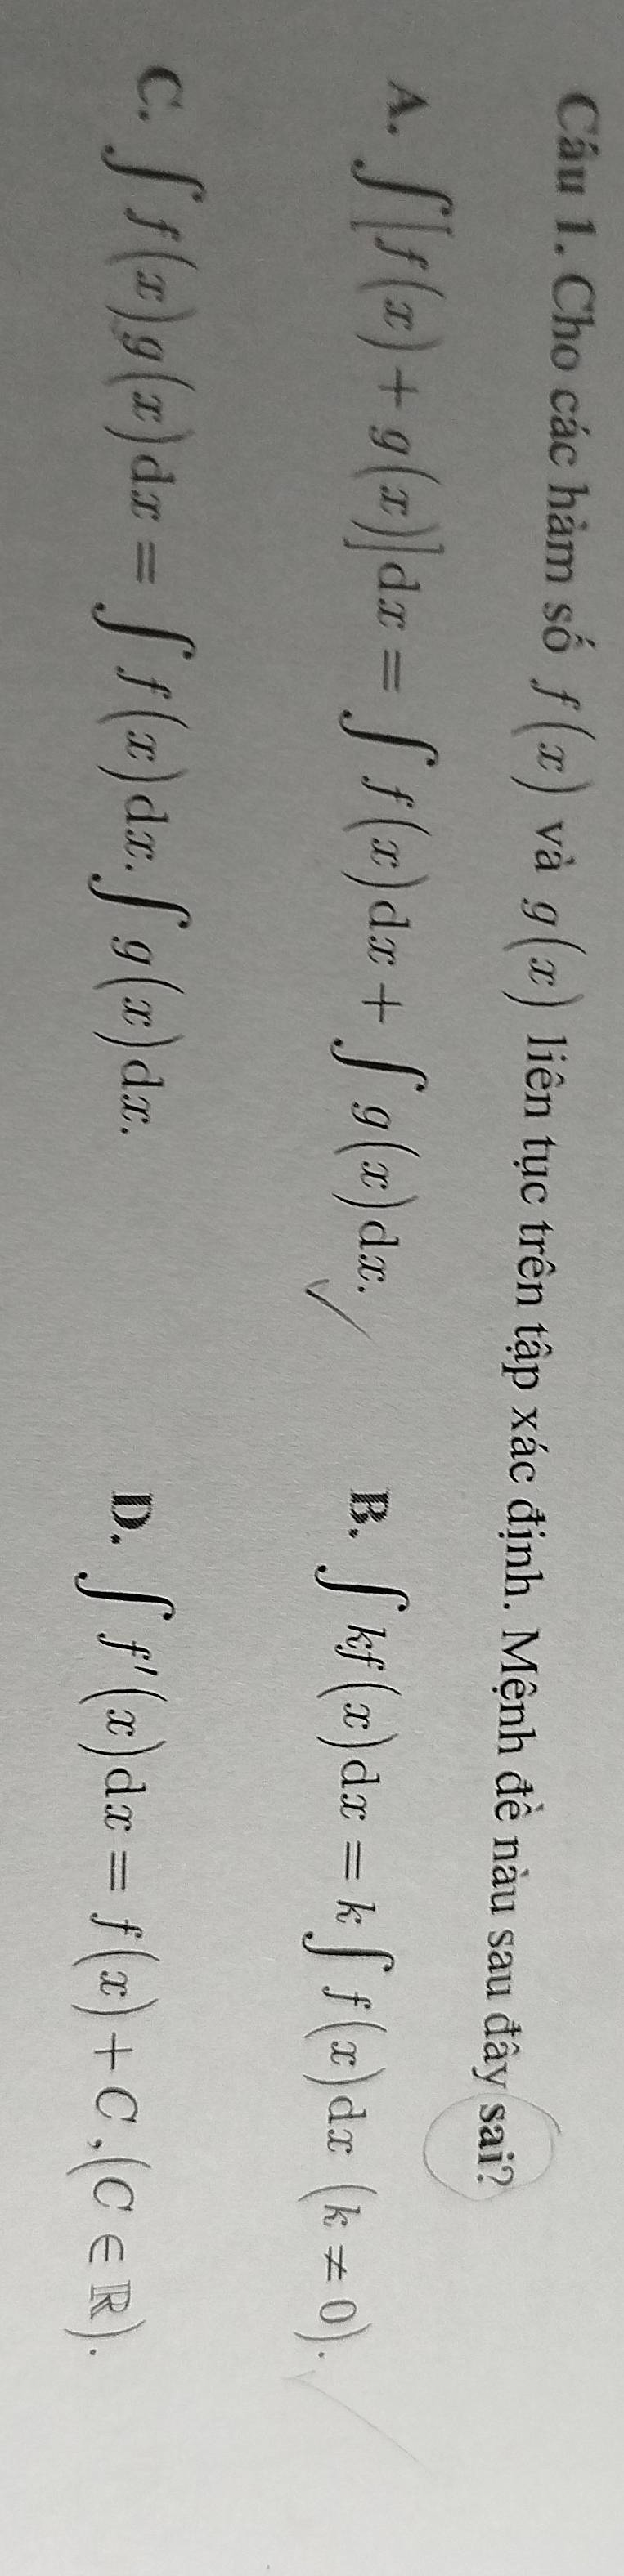 Câu 1. Cho các hàm số f(x) và g(x) liên tục trên tập xác định. Mệnh đề nàu sau đây sai?
A. ∫[f(x)+g(x)]dx = ∫f(x)dx + ∫g(x)dx. B. ∫kf(x)dx = k∫f(x)dx (k ≠ 0).
C. ∫f(x)g(x)dx = ∫f(x)dx.∫g(x)dx. D. ∫f'(x)dx = f(x)+C ,(C ∈ ℝ).